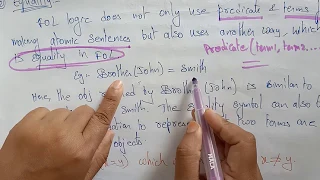 Equality:
FOL logic does not only use predicate & terms
making atomic sentences but also uses another way, which
is equality in FOL Predicate(term1, term2....
Eg:- Brother(John) = Smith
Here, the obj by Brother (John) is similar to
Smith. The equality symbol can also
to rep two terms are
objects.
=y) which x≠y.